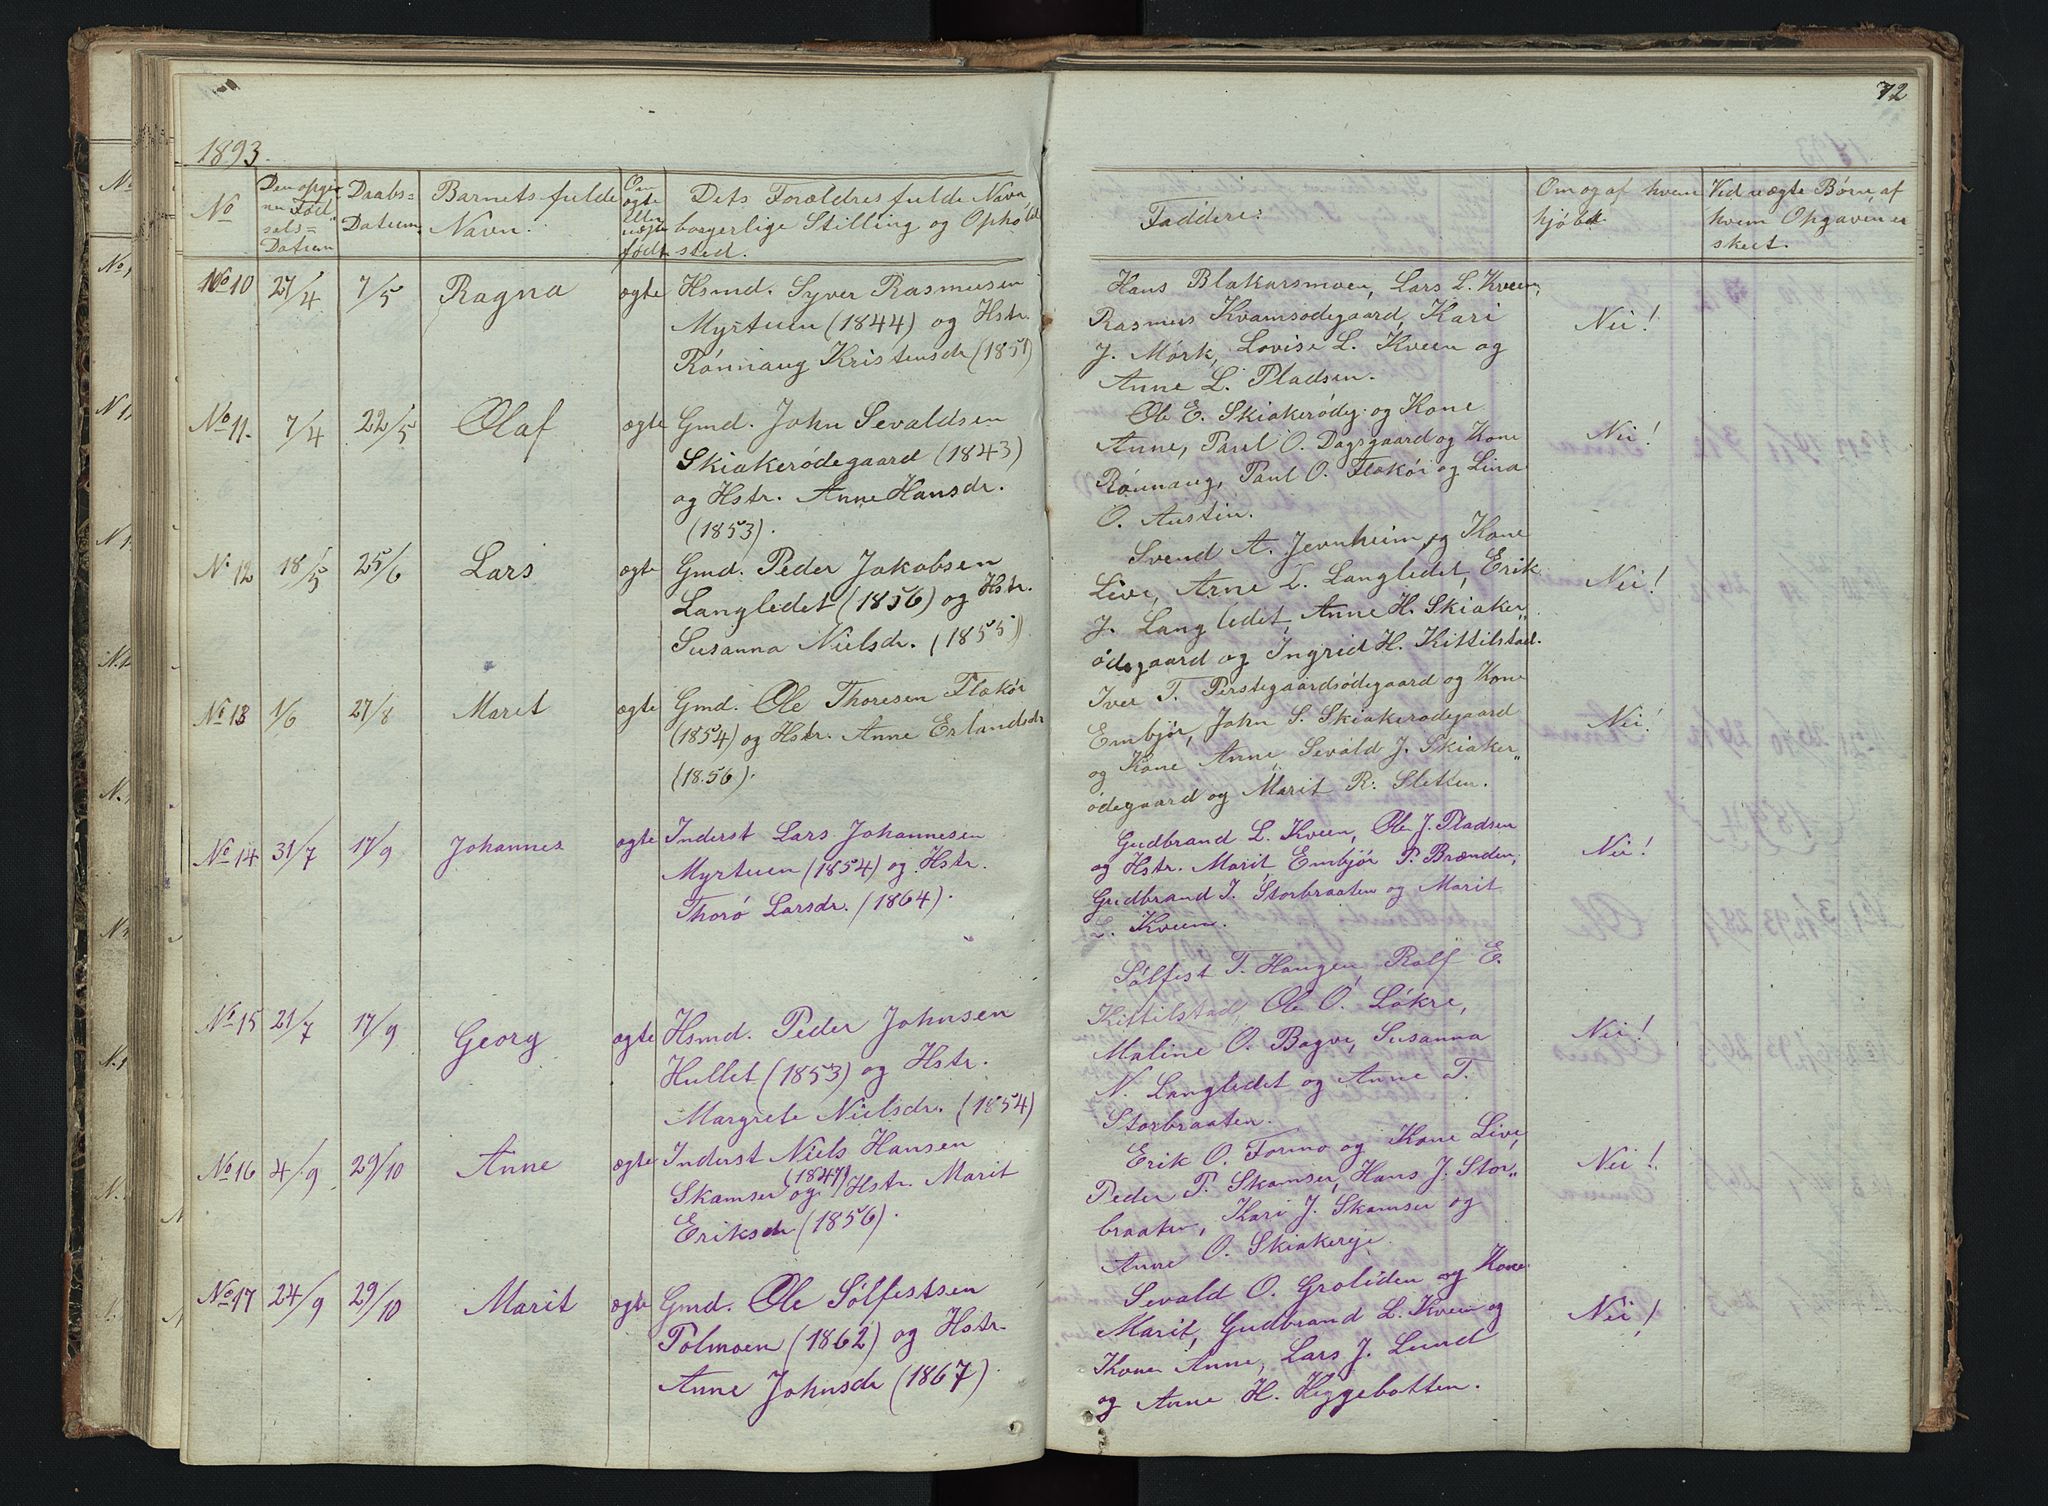 72
1893.
No
Den opgivne Fødsels= Datum
Daabs= Datum.
Barnets fulde Navn.
Om ægte eller uægte født
Dets Forældres fulde Navn, borgerlige Stilling og Opholdssted.
Faddere:
Om og af hvem hjøbdt.
Ved uægte Børn, af hvem Opgaven er skeet.
No 10 27/4 7/5 Ragna ægte Hsmd. Syver Rasmusen
Myrtuen (1844) og Hstr.
Rønnaug Kristensdr (1851)
Hans Blakarsmoen, Lars L. Kveen,
Rasmus Kvamsødegaard, Kari
J. Mørk, Lovise L. Kveen og
Anne L. Pladsen.
Nei!
No 11. 7/4 22/5 Olaf ægte Gmd. John Sevaldsen
Skiakerødegaard (1843)
og Hstr. Anne Hansdr.
(1853).
Ole E. Skiakerødeg. og Kone
Anne, Paul O. Dagsgaard og Kone
Rønnaug, Paul O. Flækøi og Lina
O. Austin.
Nei!
No 12 18/5 25/6 Lars ægte Gmd. Peder Jakobsen
Langledet (1856) og Hstr.
Susanna Nielsdr. (1855)
Svend A. Jevnheim og Kone
Live, Arne L. Langledet, Erik
J. Langledet, Anne H. Skiaker„
ødegaard og Ingrid H. Kittilstad.
Nei!
No 13 1/6 27/8 Marit ægte Gmd. Ole Thoresen Flækøi
(1854) og Hstr. Anne Erlandsdr
(1856).
Iver T. Perstegaardsødegaard og Kone
Embjør, John S. Skiakerødegaard
og Kone Anne, Sevald J. Skiaker„
ødegaard og Marit R. Sletten.
Nei!
No 14 31/7 17/9 Johannes ægte Inderst Lars Johannesen
Myrtuen (1854) og Hstr.
Thorø Larsdr. (1864).
Gudbrand L. Kveen, Ole J. Pladsen
og Hstr. Marit, Embjør P. Brænden,
Gudbrand J. Storbraaten og Marit
L. Kveen.
Nei!
No 15 21/7 17/9 Georg ægte Hsmd. Peder Johnsen
Hullet (1853) og Hstr.
Margrete Nielsdr. (1854)
Sølfest T. Haugen, Rolf E.
Kittilstad, Ole O. Løkre,
Maline O. Bagve, Susanna
N. Langledet og Anne T.
Storbraaten.
Nei!
No 16 4/9 29/10 Anne ægte Inderst Niels Hansen
Skamser (1847) og Hstr. Marit
Eriksdr (1856).
Erik O. Formo og Kone Live,
Peder P. Skamser, Hans J. Stor„
braaten, Kari J. Skamser og
Anne O. Skiakereje.
Nei!
No 17 24/9 29/10 Marit ægte Gmd. Ole Sølfestsen
Polmoen (1862) og Hstr.
Anne Johnsdr (1867).
Sevald O. Groliden og Kone
Marit, Gudbrand L. Kveen og
Kone Anne, Lars J. Lund
og Anne H. Heggebotten.
Nei!